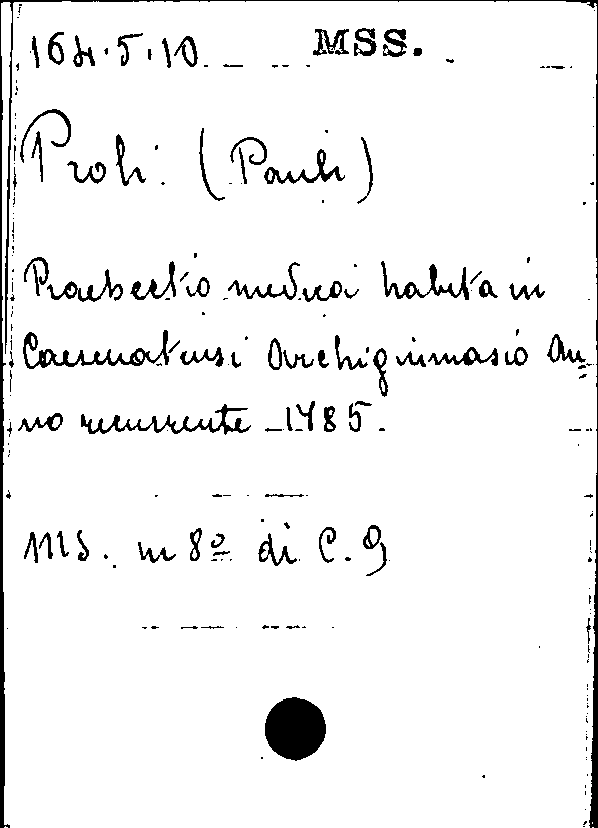 164.5.10 MSS.
Proli (Pauli)
Praelectio medica habita in
Caesenatensi Archiginnasio An=
no recurrente 1785.
MS. in 8º di C. 9